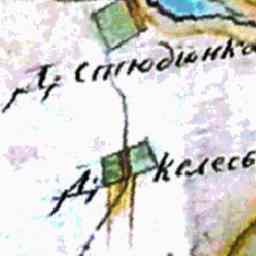 Д; Стюдіонка
Д; Келесь